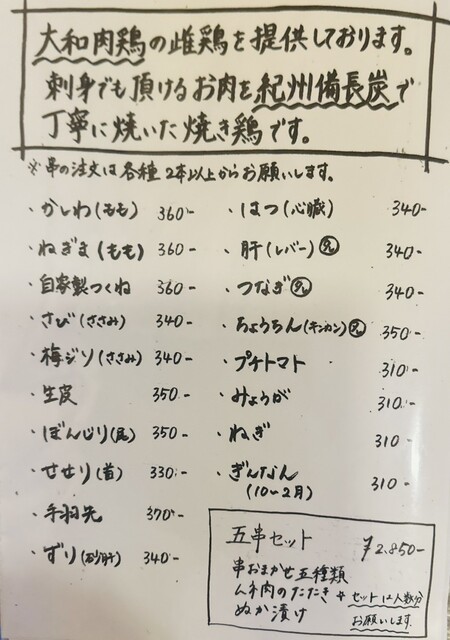 大和肉鶏の雌鶏を提供しております。
刺身でも頂けるお肉を紀州備長炭で
丁寧に焼いた焼き鶏です。
※串の注文は各種2本以上からお願いします。
・かしわ(もも) 360-
・ねぎま(もも) 360-
・自家製つくね 360-
・さび(ささみ) 340-
・梅ジソ(ささみ) 340-
・生皮 350-
・ぼんじり(尾) 350-
・せせり(首) 330-
・手羽先 370-
・ずり(砂肝) 340-
・はつ(心臓) 340-
・肝(レバー)タレ 340-
・つなぎタレ 340-
・ちょうちん(キンカン)タレ 350-
・プチトマト 310-
・みょうが 310-
・ねぎ 310-
・ぎんなん 310-
(10〜2月)
五串セット ¥2.850-
串おまかせ五種類
ムネ肉のたたき
ぬか漬け
セットは人数分
お願いします。